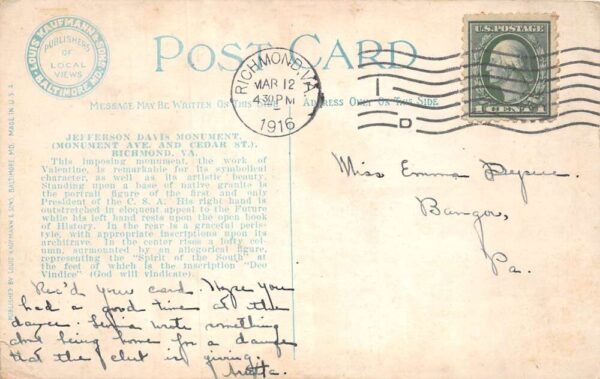 LOUIS KAUFMANN & SONS
BALTIMORE MD.
PUBLISHERS
OF
LOCAL
VIEWS
POST CARD
MESSAGE MAY BE WRITTEN ON THIS SIDE
ADDRESS ONLY ON THIS SIDE
RICHMOND, VA.
MAR 12
430 PM
1916
1
D
U.S. POSTAGE
1 CENT 1
PUBLISHED BY LOUIS KAUFMANN & SONS, BALTIMORE, MD. MADE IN U.S.A.
JEFFERSON DAVIS MONUMENT,
(MONUMENT AVE. AND CEDAR ST.),
RICHMOND, VA.
This imposing monument, the work of
Valentine, is remarkable for its symbolical
character, as well as its artistic beauty.
Standing upon a base of native granite is
the portrait figure of the first and only
President of the C. S. A. His right hand is
outstretched in eloquent appeal to the Future
while his left hand rests upon the open book
of History. In the rear is a graceful peris-
tyle, with appropriate inscriptions upon its
architrave. In the center rises a lofty col-
umn, surmounted by an allegorical figure,
representing the "Spirit of the South" at
the feet of which is the inscription "Deo
Vindice" (God will vindicate).
Rec'd your card. Hope you
had a good time at the
dance. wrote something
about being home for a dance
that the club is giving.
Miss Emma
Bangor,
Pa.